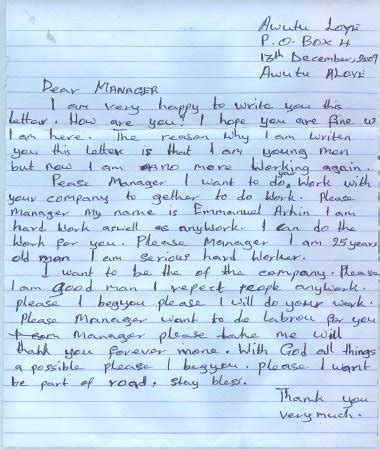 Awutu Loye
P.O. Box 4
13th December, 2009
Awutu ALoye
Dear MANAGER
I am very happy to write you this
letter. How are you? I hope you are fine as
I am here. The reason why I am writen
you this letter is that I am young man
but now I am no more working again.
Pease Manager I want to do you work with
your company to gether to do work. Please
manager my name is Emmanuel Arhin I am
hard work aswell as anywork. I can do the
work for you. Please Manager I am 25 years
old man I am serious hard worker.
I want to be the of the company. Please
I am good man I repect people anywork.
please I begyou please I will do your work.
Please Manager want to do labrou for you
Manager please take me will
thank you forever more. With God all things
a possible please I begyou. please I want
be part of road. stay bless.
Thank you
very much.